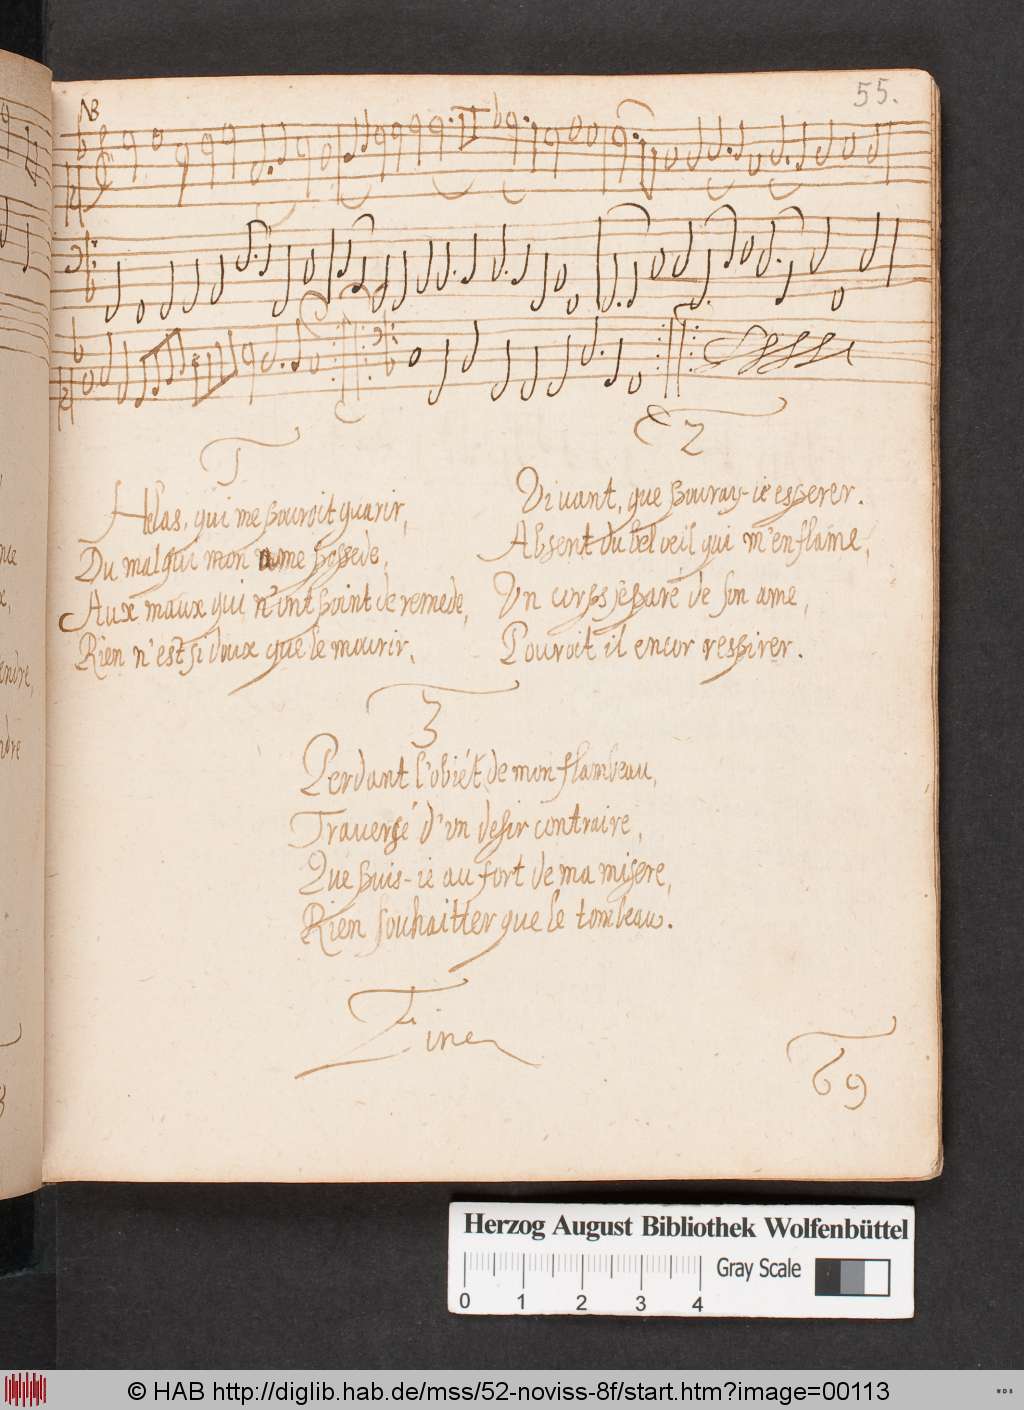 55.
NB
1
Helas, qui me pouroit guarir,
Du mal qui mon ame possede,
Aux maux qui n'ont point de remede,
Rien n'est si doux que le mourir,
2
Vivant, que pouray-ie esperer.
Absent du bel oeil qui m'enflâme,
Vn corps séparé de son ame,
Pouroit il encor respirer.
3
Perdant l'obiét de mon flambeau,
Traversé d'vn desir contraire,
Que puis-ie au fort de ma misere,
Rien souhaitter que le tombeau.
Fine
69
endre,
ndre
Herzog August Bibliothek Wolfenbüttel
Gray Scale
0 1 2 3 4
© HAB http://diglib.hab.de/mss/52-noviss-8f/start.htm?image=00113